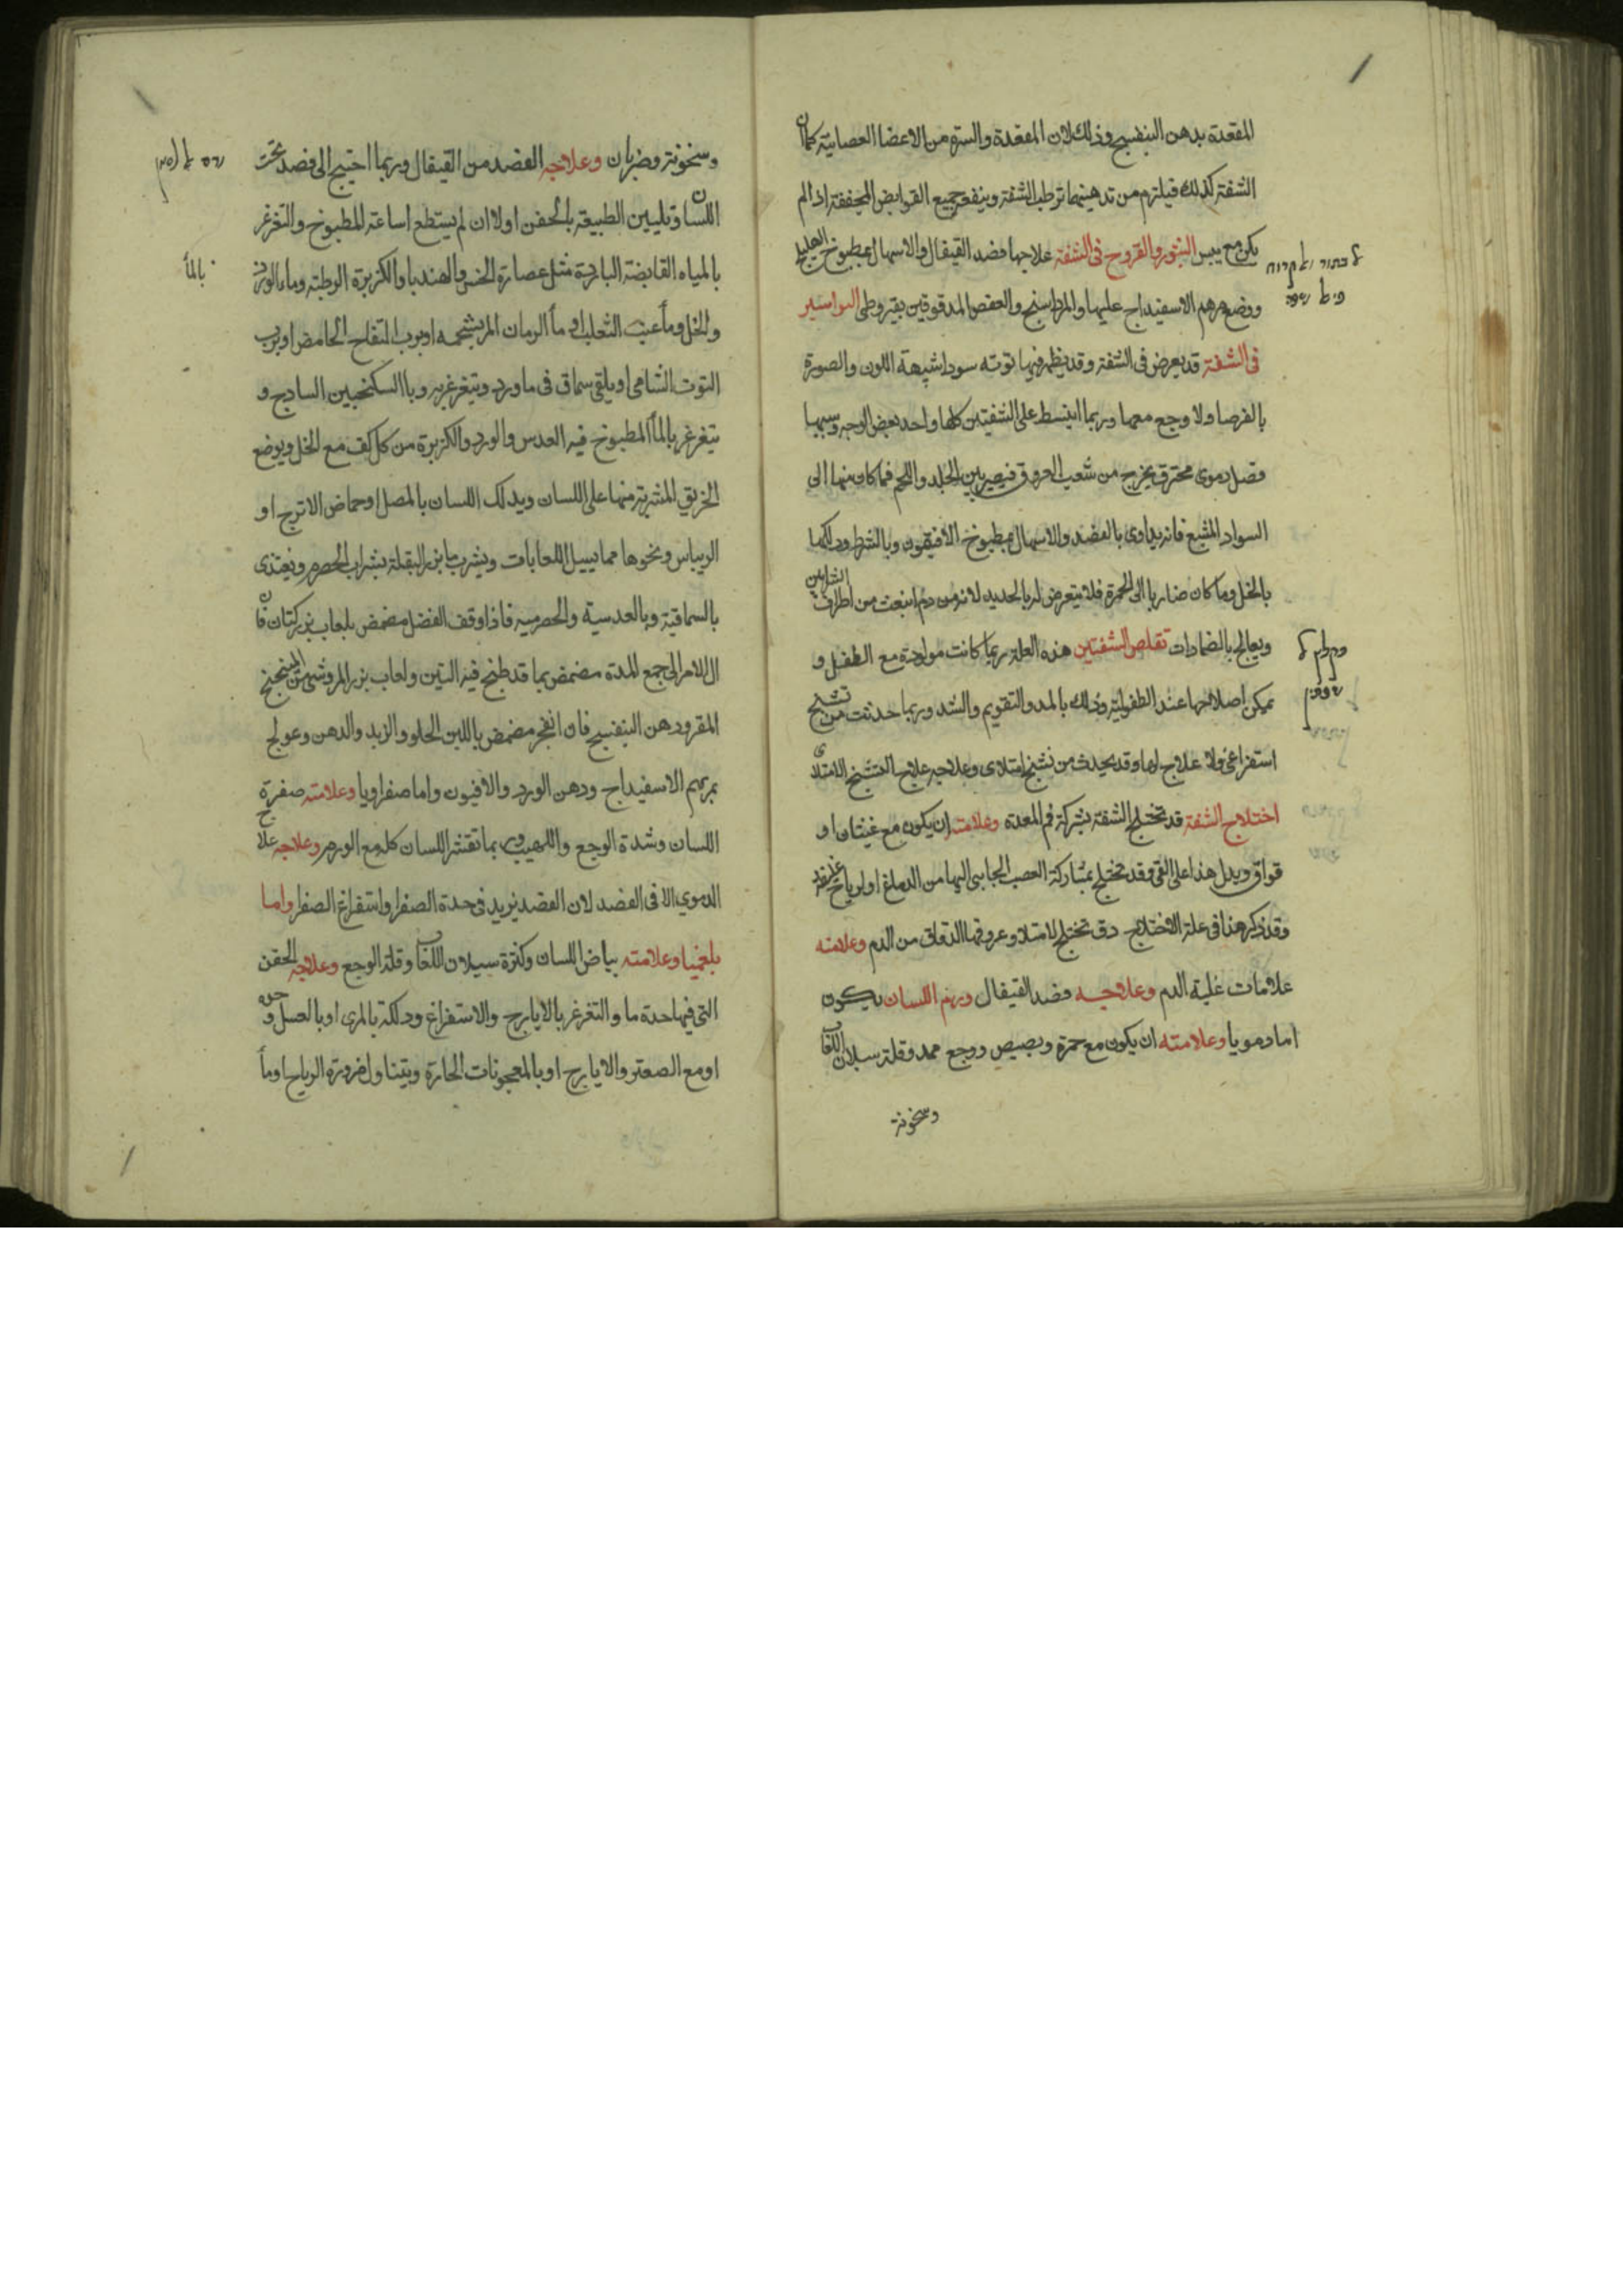 المقعدة بدهن البنفسج وذلك لان المقعدة والسرة من الاعضا العصبانية كما ان
الشفة كذلك فيلزم من تدهينهما ترطب الشفة وينفعه جميع القوابض المجففة اذا لم
يكن مع يبس البثور والقروح فى الشفة علاجها فصد القيفال والاسهال بمطبوخ الهليلج
ووضع مرهم الاسفيداج عليها والمرداسنج والعفص المدقوقين بقيروطى البواسير
فى الشفة قد يعرض فى الشفة وقد يظهر فيها توته سودا شبيهة اللون والصورة
بالفرصا ولا وجع معها وربما انبسط على الشفتين كلها واحد بعض الوجه وسببها
فضل دموى محترق يخرج من شعب العروق فيصير بين الجلد واللحم فما كان منها الى
السواد المشبع فانه يداوى بالفصد والاسهال بمطبوخ الافتيمون وبالشرط ودلكها
بالخل وما كان ضاربا الى الحمرة فلا يتعرض له بالحديد لانه من دم انبعث من اطراف الشرايين
ويعالج بالضمادات تقلص الشفتين هذه العلة ربما كانت مولودة مع الطفل و
يمكن اصلاحها عند الطفولية وذلك بالمد والتقويم والشد وربما حدثت من تشنج
استفراغى ولا علاج لها وقد يحدث من تشنج امتلاى وعلاجه علاج التشنج الامتلاى
اختلاج الشفة قد تختلج الشفة بشركة فم المعدة وعلامته ان يكون مع غيثان او
فواق ويدل هذا على القى وقد تختلج بمشاركة العصب الجاىى اليها من الدماغ او لرياح
وقد ذكر هذا فى علة الاختلاج وقد تختلج لامتلا وعروقها الدقاق من الدم وعلامته
علامات غلبة الدم وعلاجه فصد القيفال ورم اللسان يكون
اما دمويا وعلامته ان يكون مع حمرة وبصيص ووجع ممد وقلة سيلان اللعاب
وسخونة
وسخونة وضربان وعلاجه الفصد من القيفال وربما احتيج الى فصد تحت
اللسان وتليين الطبيعة بالحقن اولا ان لم يستطع اساعة المطبوخ والتغرغر
بالمياه القابضة الباردة مثل عصارة الخس والهندبا والكزبرة الرطبة وماء الورد
بالماء
والخل وماء عنب الثعلب او ماء الرمان المز بشحمه او برب التفاح الحامض او برب
التوت الشامى او يلقى سماق فى ما ورد ويتغرغر به وبا السكنجبين السادج و
يتغرغر بالماء المطبوخ فيه العدس والورد والكزبرة من كل كف مع الخل ويوضع
الخزيق المشربة منها على اللسان ويدلك اللسان بالمصل او حماض الاترج او
الريباس ونحوها مما يسيل اللعابات ويشرب ما بزر البقلة بشراب الحصرم ويغتذى
بالسماقية وبالعدسية والحصرمية فاذا وقف الفضل مضمض بلعاب بزر كتان فان
ال الامر الى جمع المدة مضمض بما قد طبخ فيه التين ولعاب بزر المرو
ودهن البنفسج فان انفجر مضمض باللبن الحلو والزبد والدهن وعولج
بمرهم الاسفيداج ودهن الورد والافيون واما صفراويا وعلامته صفرة
اللسان وشدة الوجع واللهيب وربما تقشر اللسان كله مع الورم وعلاجه علاج
الدموي الا فى الفصد لان الفصد يزيد فى حدة الصفرا واستفراغ الصفرا واما
بلغميا وعلامته بياض اللسان وكثرة سيلان اللعاب وقلة الوجع وعلاجه الحقن
التى فيها حدة ما والتغرغر بالايارج والاستفراغ ودلكه بالمرى او بالعسل وحده
او مع الصعتر والايارج او بالمعجونات الحارة ويتناول